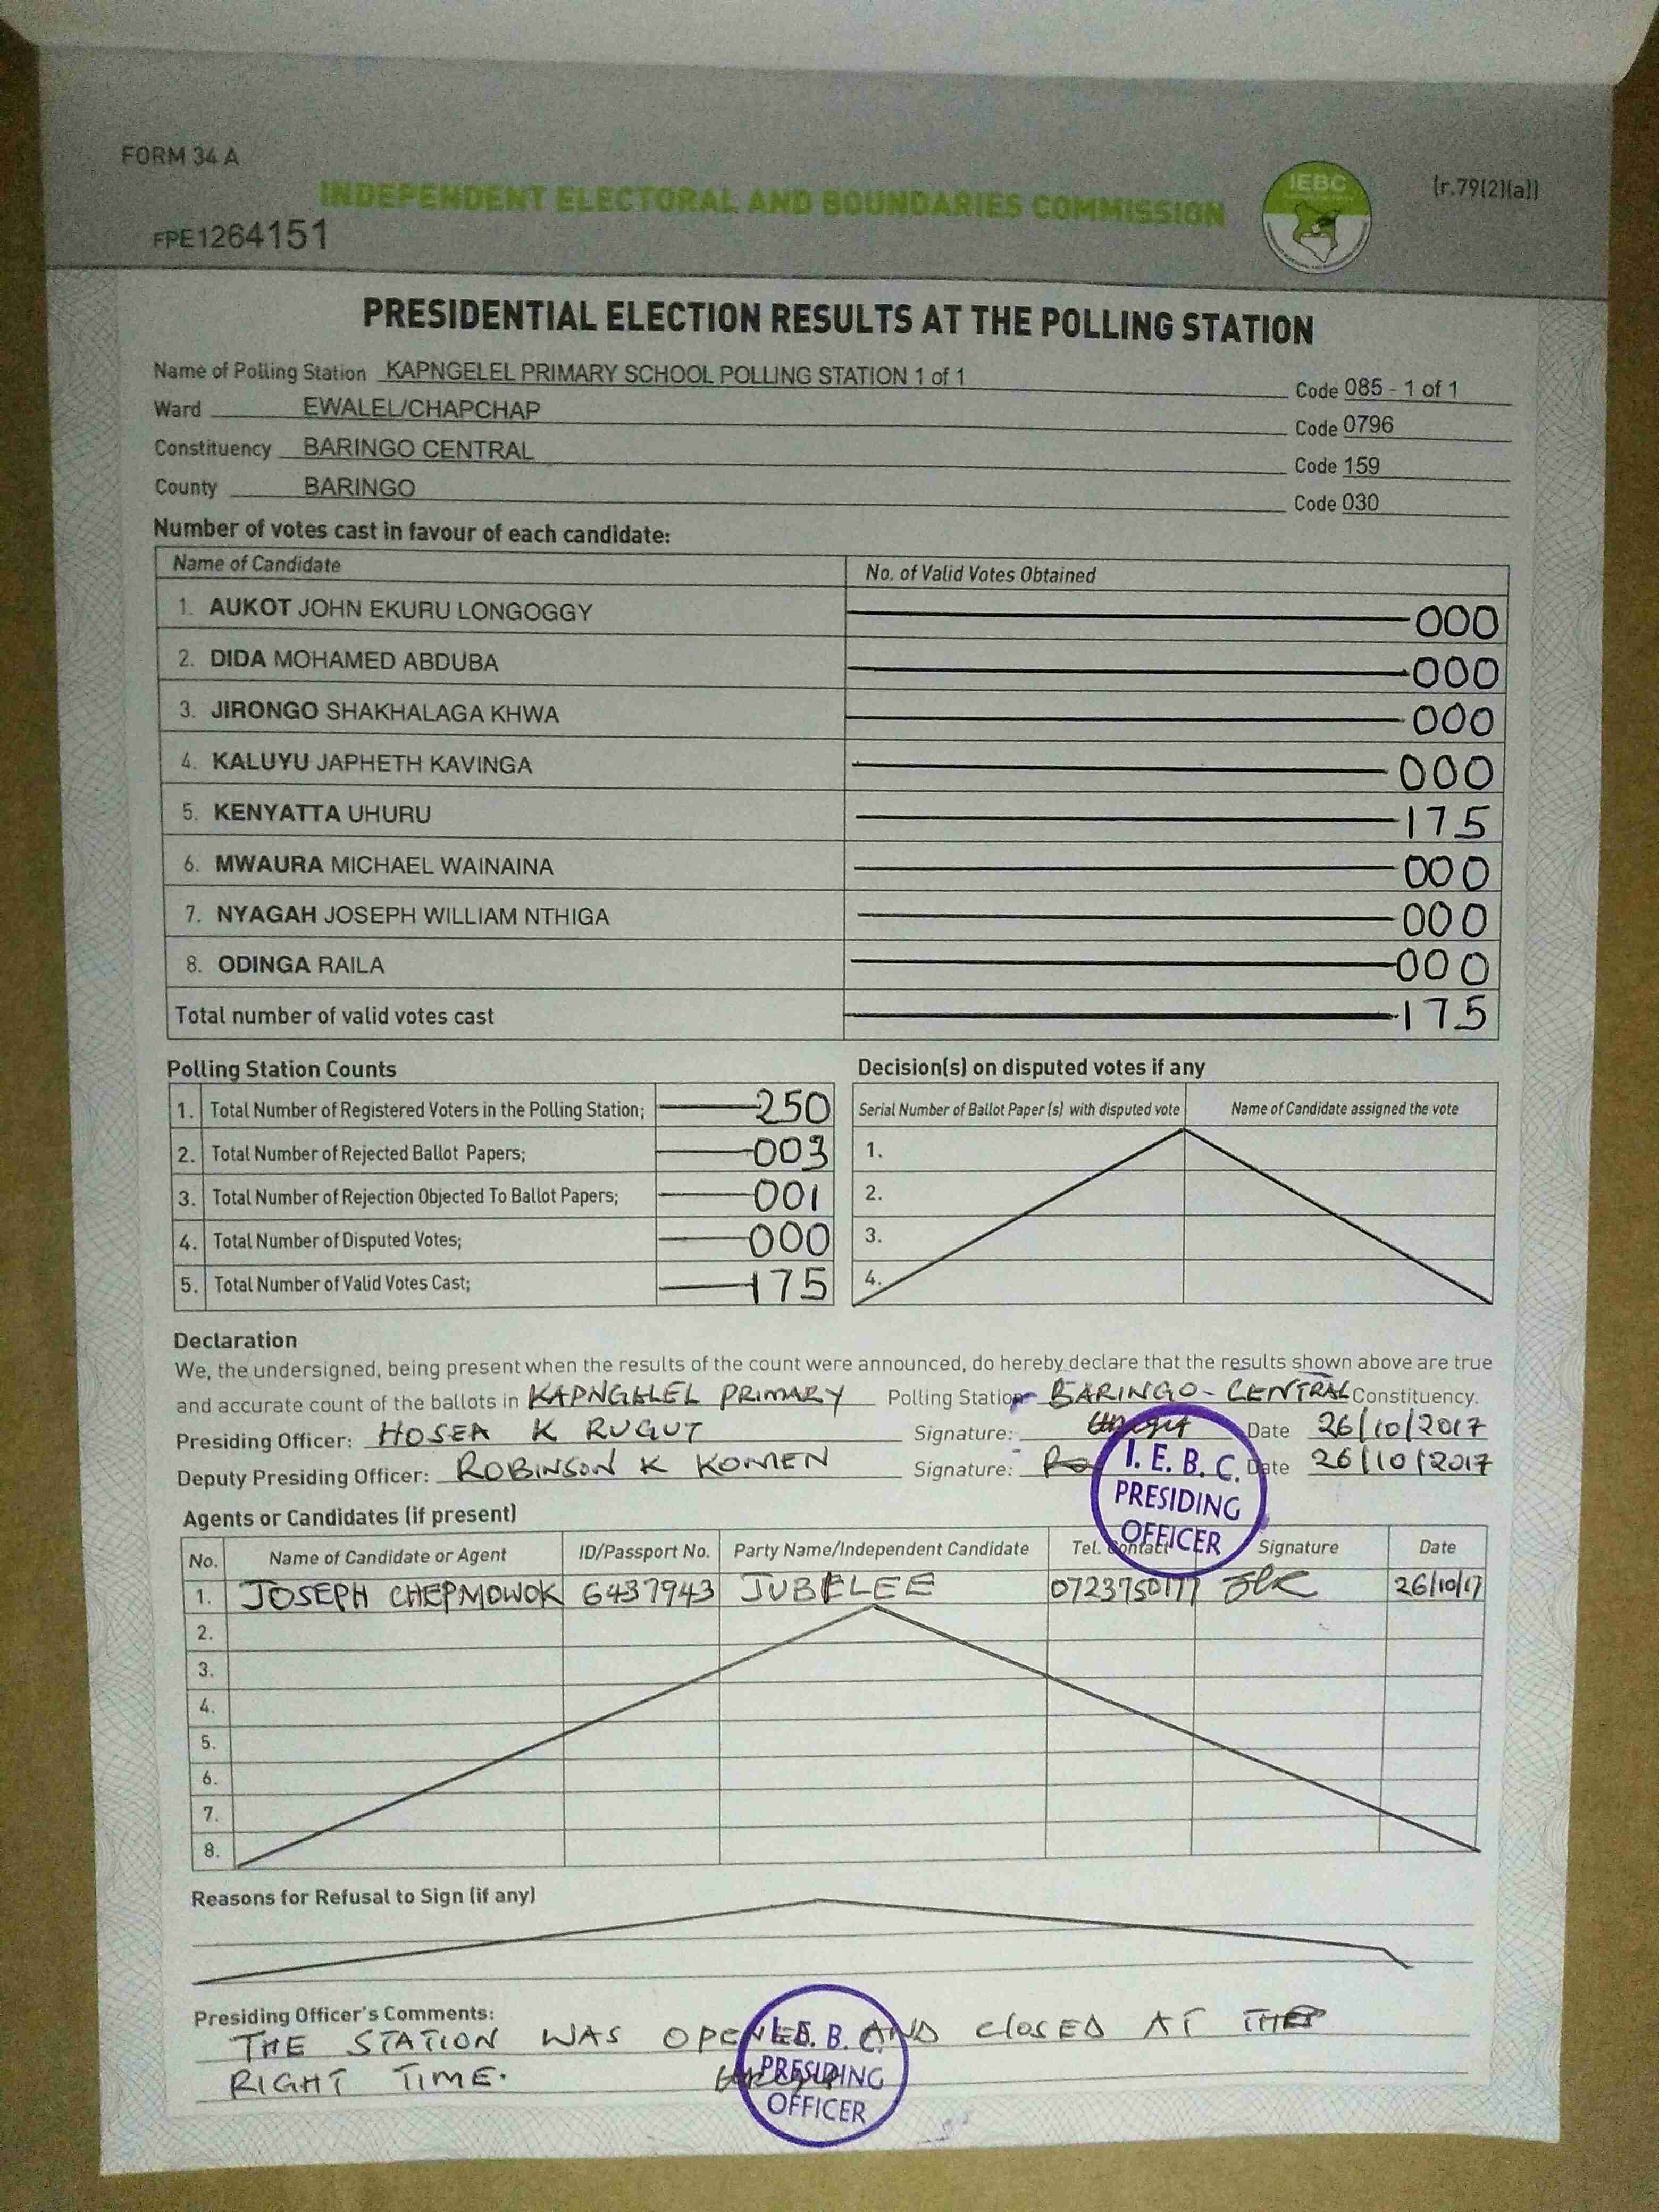 FORM 34 A
INDEPENDENT ELECTORAL AND BOUNDARIES COMMISSION
IEBC
(r.79(2)(a))
FPE1264151
PRESIDENTIAL ELECTION RESULTS AT THE POLLING STATION
Name of Polling Station KAPNGELEL PRIMARY SCHOOL POLLING STATION 1 of 1 Code 085 - 1 of 1
Ward EWALEL/CHAPCHAP Code 0796
Constituency BARINGO CENTRAL Code 159
County BARINGO Code 030
Number of votes cast in favour of each candidate:
Name of Candidate No. of Valid Votes Obtained
1. AUKOT JOHN EKURU LONGOGGY 000
2. DIDA MOHAMED ABDUBA 000
3. JIRONGO SHAKHALAGA KHWA 000
4. KALUYU JAPHETH KAVINGA 000
5. KENYATTA UHURU 175
6. MWAURA MICHAEL WAINAINA 000
7. NYAGAH JOSEPH WILLIAM NTHIGA 000
8. ODINGA RAILA 000
Total number of valid votes cast 175
Polling Station Counts
1. Total Number of Registered Voters in the Polling Station; 250
2. Total Number of Rejected Ballot Papers; 003
3. Total Number of Rejection Objected To Ballot Papers; 001
4. Total Number of Disputed Votes; 000
5. Total Number of Valid Votes Cast; 175
Decision(s) on disputed votes if any
Serial Number of Ballot Paper (s) with disputed vote Name of Candidate assigned the vote
1.
2.
3.
4.
Declaration
We, the undersigned, being present when the results of the count were announced, do hereby declare that the results shown above are true
and accurate count of the ballots in KAPNGELEL PRIMARY Polling Station BARINGO - CENTRAL Constituency.
Presiding Officer: HOSEA K RUGUT Signature: Date 26/10/2017
Deputy Presiding Officer: ROBINSON K KOMEN Signature: Date 26/10/2017
I. E. B. C.
PRESIDING
OFFICER
Agents or Candidates (if present)
No. Name of Candidate or Agent ID/Passport No. Party Name/Independent Candidate Tel. Contact Signature Date
1. JOSEPH CHEPMOWOK 6437943 JUBELEE 0723750177 26/10/17
2.
3.
4.
5.
6.
7.
8.
Reasons for Refusal to Sign (if any)
Presiding Officer's Comments:
THE STATION WAS OPENED AND CLOSED AT THE
RIGHT TIME.
I. E. B. C.
PRESIDING
OFFICER